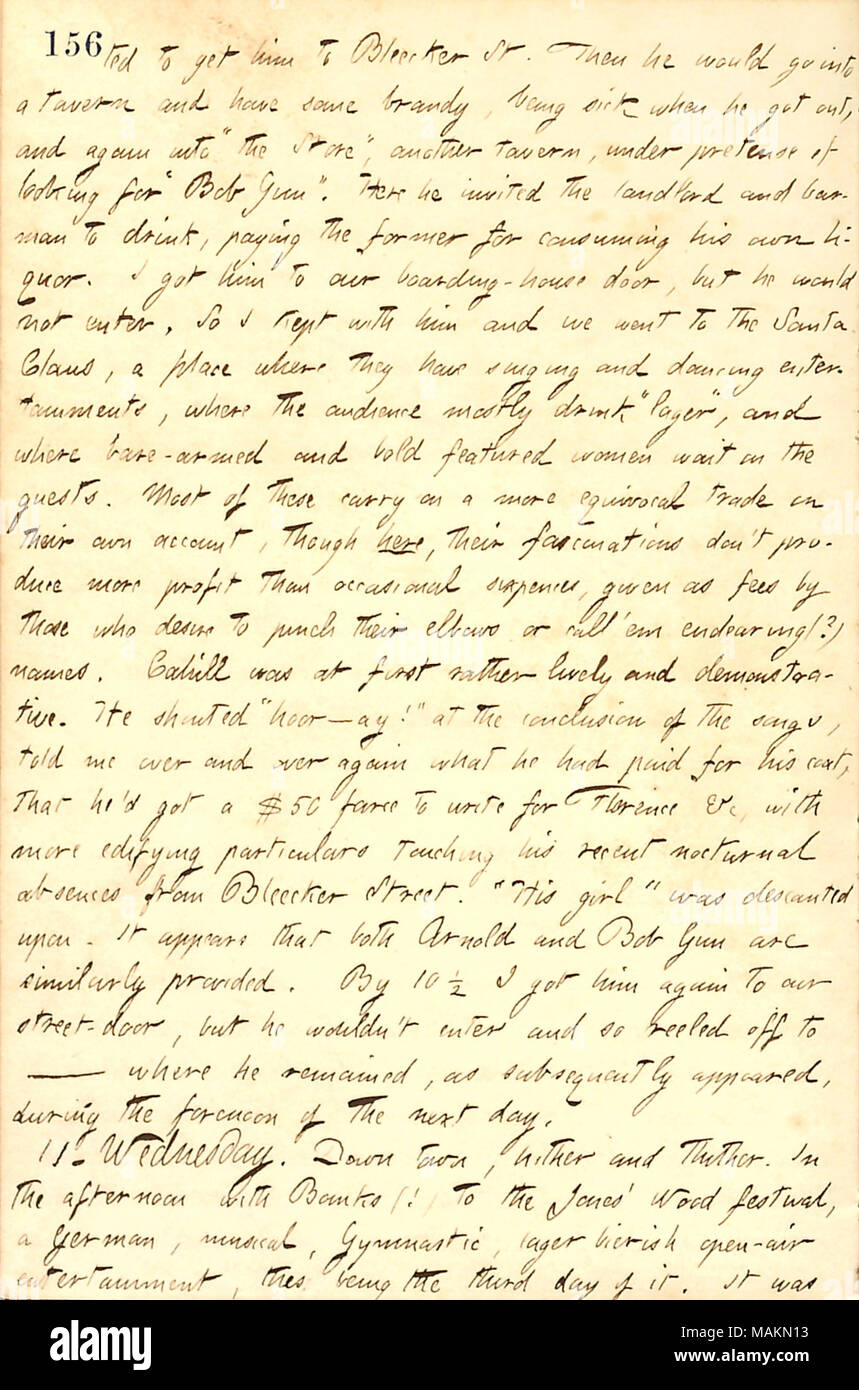 156
ted to get him to Bleecker St. Then he would go into
a tavern and have some brandy, being sick when he got out,
and again into "the Store", another tavern, under pretense of
looking for "Bob Gun". Here he invited the landlord and bar-
man to drink, paying the former for consuming his own li-
quor. I got him to our boarding-house door, but he would
not enter. So I kept with him and we went to the Santa
Claus, a place where they have singing and dancing enter-
tainments, where the audience mostly drink "lager", and
where bare-armed and bold featured women wait on the
guests. Most of these carry on a more equivocal trade on
their own account, though here, their fascinations don't pro-
duce more profit than occasional sixpences, given as fees by
those who desire to pinch their elbows or call 'em endearing (?)
names. Cahill was at first rather lively and demonstra-
tive. He shouted "hoor—ay!" at the conclusion of the songs,
told me over and over again what he had paid for his coat,
that he'd got a $50 farce to write for Florence &c, with
more edifying particulars touching his recent nocturnal
absences from Bleecker Street. "His girl" was descanted
upon. It appears that both Arnold and Bob Gun are
similarly provided. By 10 ½ I got him again to our
street-door, but he wouldn't enter and so reeled off to
—— where he remained, as subsequently appeared,
during the forenoon of the next day.
11. Wednesday. Down town, hither and thither. In
the afternoon with Banks (!) to the Jones' Wood festival,
a German, musical, Gymnastic, lager bierish open-air
entertainment, this being the third day of it. It was
alamy
Image ID: MAKN13
www.alamy.com